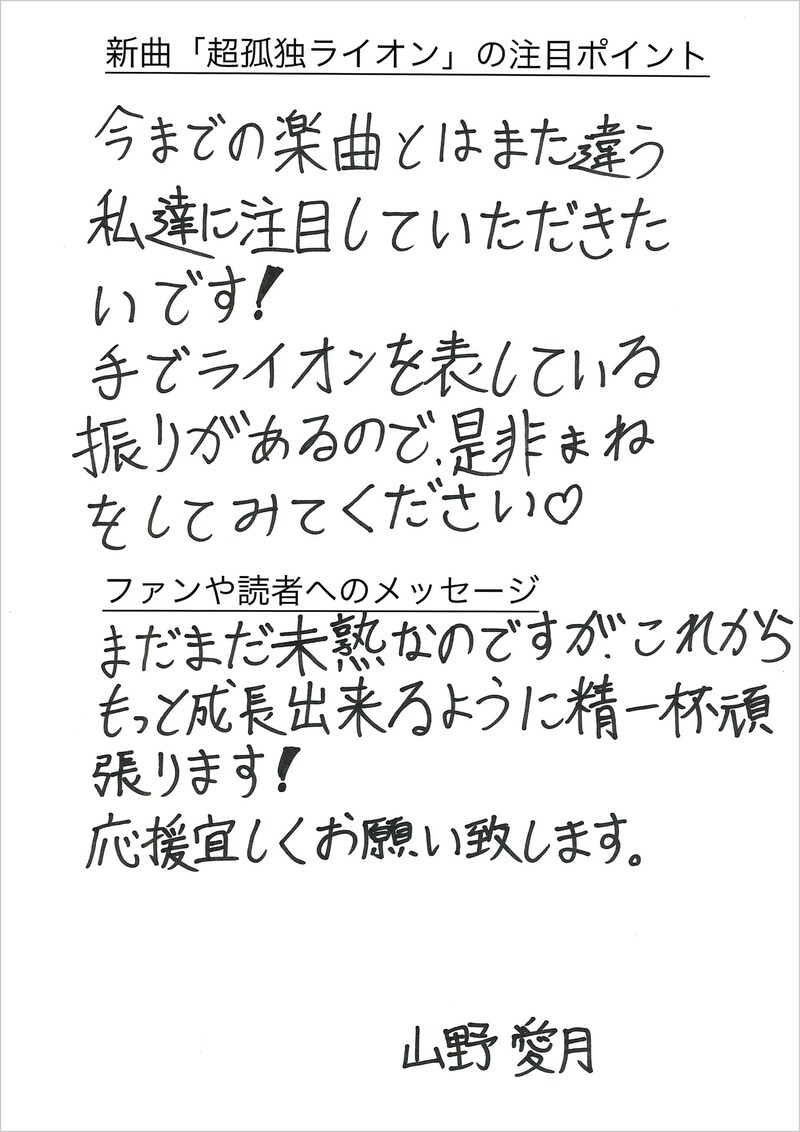 新曲「超孤独ライオン」の注目ポイント
今までの楽曲とはまた違う
私達に注目していただきた
いです!
手でライオンを表している
振りがあるので、是非まね
をしてみてください♡
ファンや読者へのメッセージ
まだまだ未熟なのですが、これから
もっと成長出来るように精一杯頑
張ります!
応援宜しくお願い致します。
山野 愛月